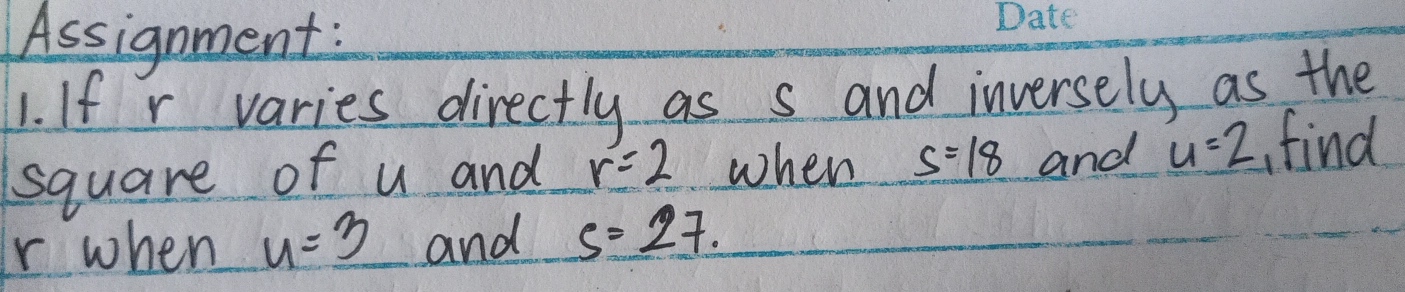 Date
Assignment:
1. If r varies directly as s and inversely as the
square of u and r=2 when s=18 and u=2, find
r when u=3 and s=27.